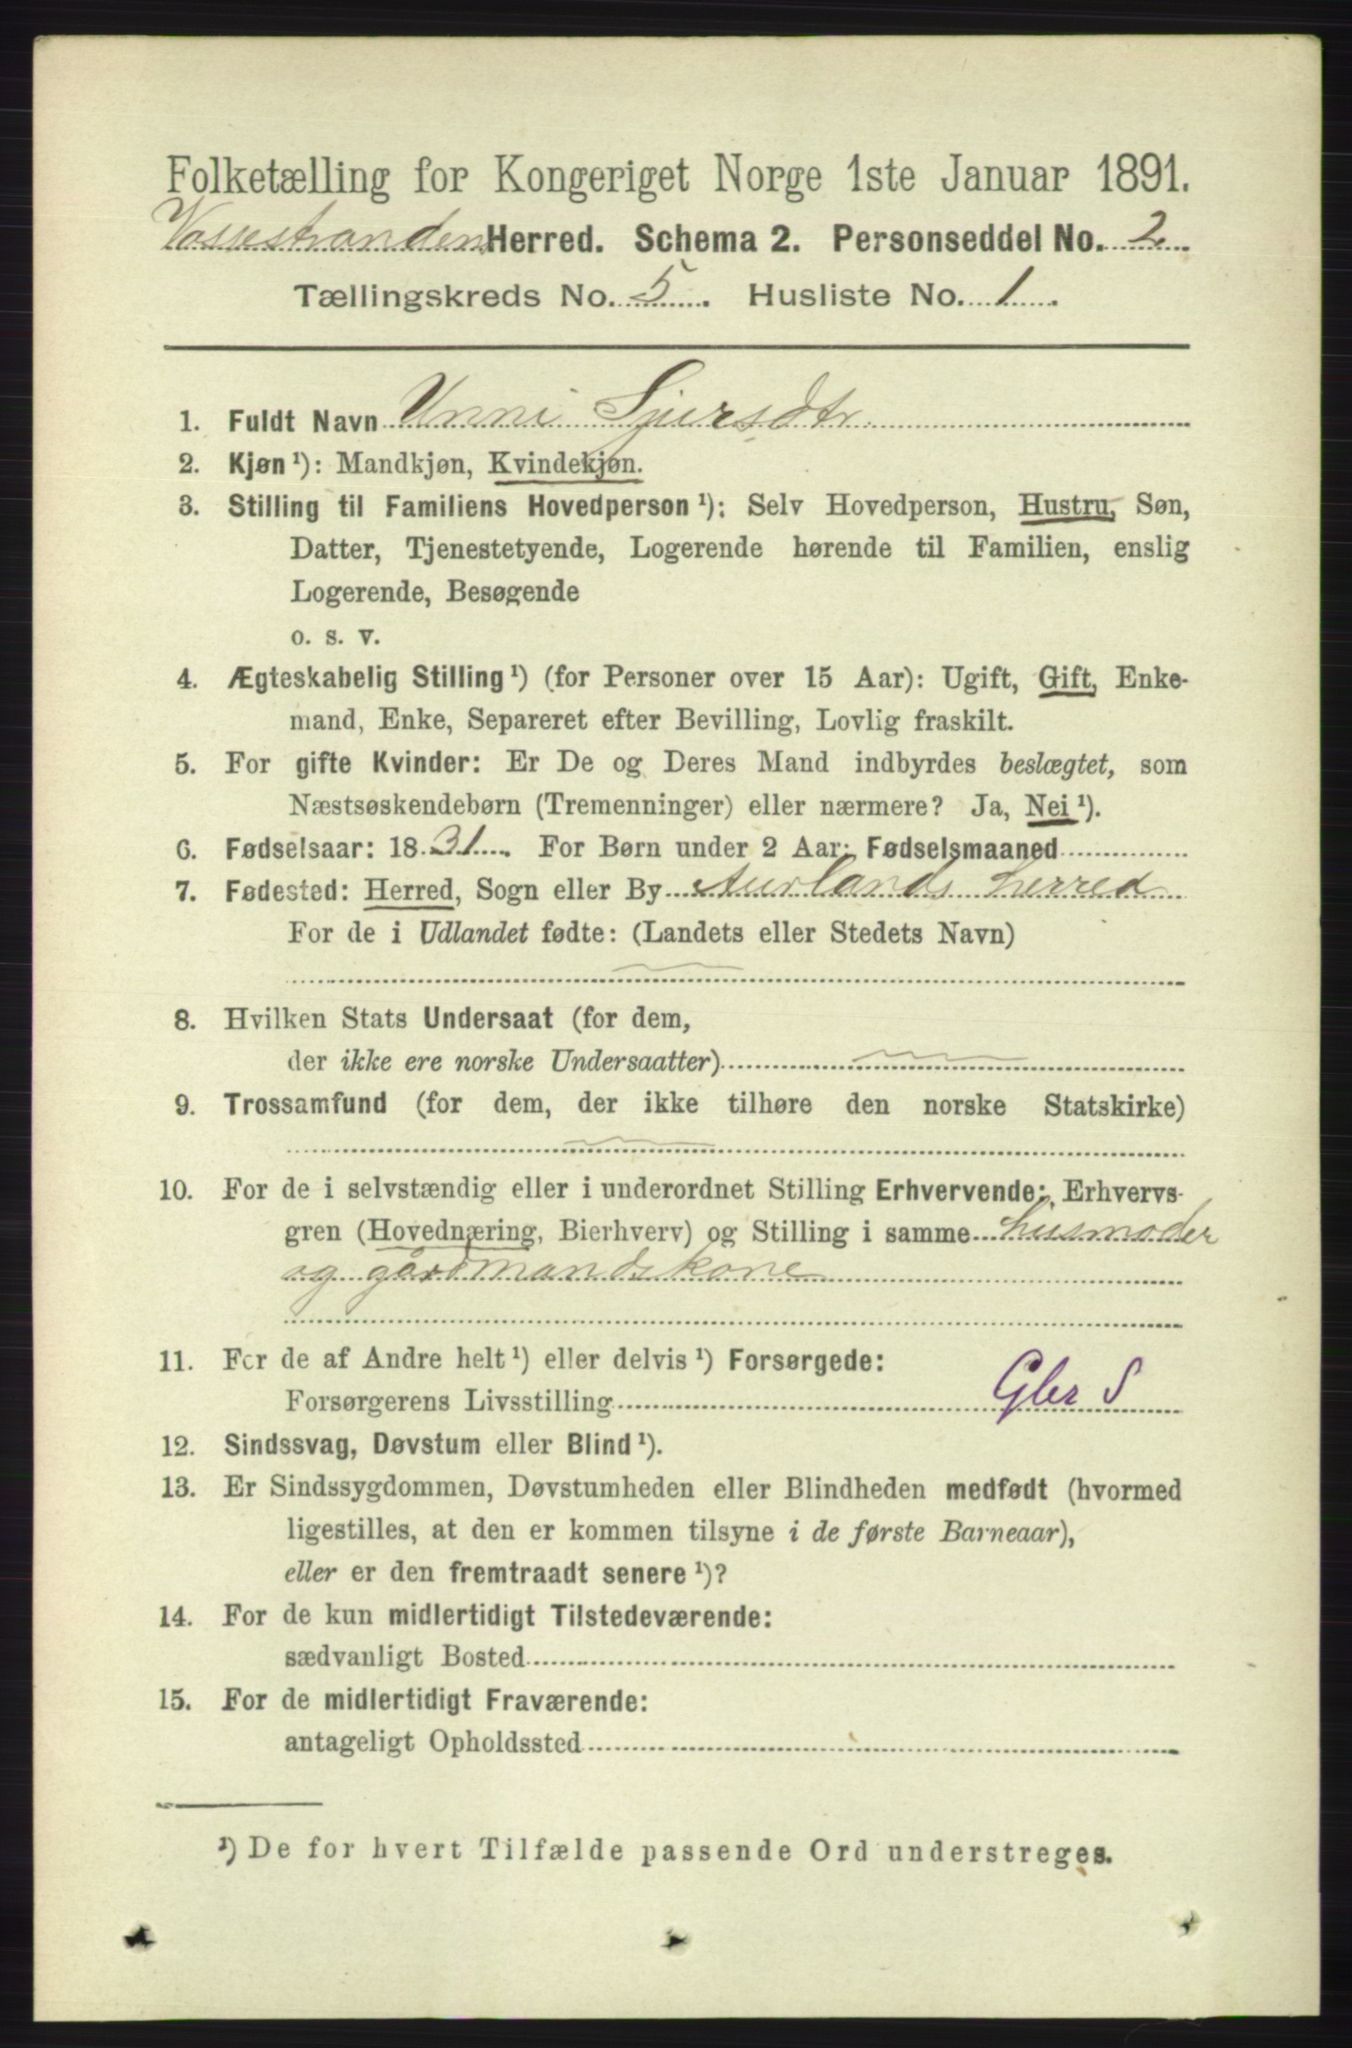 Folketælling for Kongeriget Norge 1ste Januar 1891.
Vossestranden Herred. Schema 2. Personseddel No. 2.
Tællingskreds No. 5. Husliste No. 1.
1. Fuldt Navn Unni Sjursdtr.
2. Kjøn¹): Mandkjøn, Kvindekjøn.
3. Stilling til Familiens Hovedperson¹): Selv Hovedperson, Hustru, Søn,
Datter, Tjenestetyende, Logerende hørende til Familien, enslig
Logerende, Besøgende
o. s. v.
4. Ægteskabelig Stilling¹) (for Personer over 15 Aar): Ugift, Gift, Enke-
mand, Enke, Separeret efter Bevilling, Lovlig fraskilt.
5. For gifte Kvinder: Er De og Deres Mand indbyrdes beslægtet, som
Næstsøskendebørn (Tremenninger) eller nærmere? Ja, Nei¹).
6. Fødselsaar: 1831. For Børn under 2 Aar: Fødselsmaaned
7. Fødested: Herred, Sogn eller By Aurlands herred
For de i Udlandet fødte: (Landets eller Stedets Navn)
8. Hvilken Stats Undersaat (for dem,
der ikke ere norske Undersaatter)
9. Trossamfund (for dem, der ikke tilhøre den norske Statskirke)
10. For de i selvstændig eller i underordnet Stilling Erhvervende: Erhvervs-
gren (Hovednæring, Bierhverv) og Stilling i samme husmoder
og gårdmandskone
11. For de af Andre helt¹) eller delvis¹) Forsørgede:
Forsørgerens Livsstilling Gbr S
12. Sindssvag, Døvstum eller Blind¹).
13. Er Sindssygdommen, Døvstumheden eller Blindheden medfødt (hvormed
ligestilles, at den er kommen tilsyne i de første Barneaar),
eller er den fremtraadt senere¹)?
14. For de kun midlertidigt Tilstedeværende:
sædvanligt Bosted
15. For de midlertidigt Fraværende:
antageligt Opholdssted
¹) De for hvert Tilfælde passende Ord understreges.